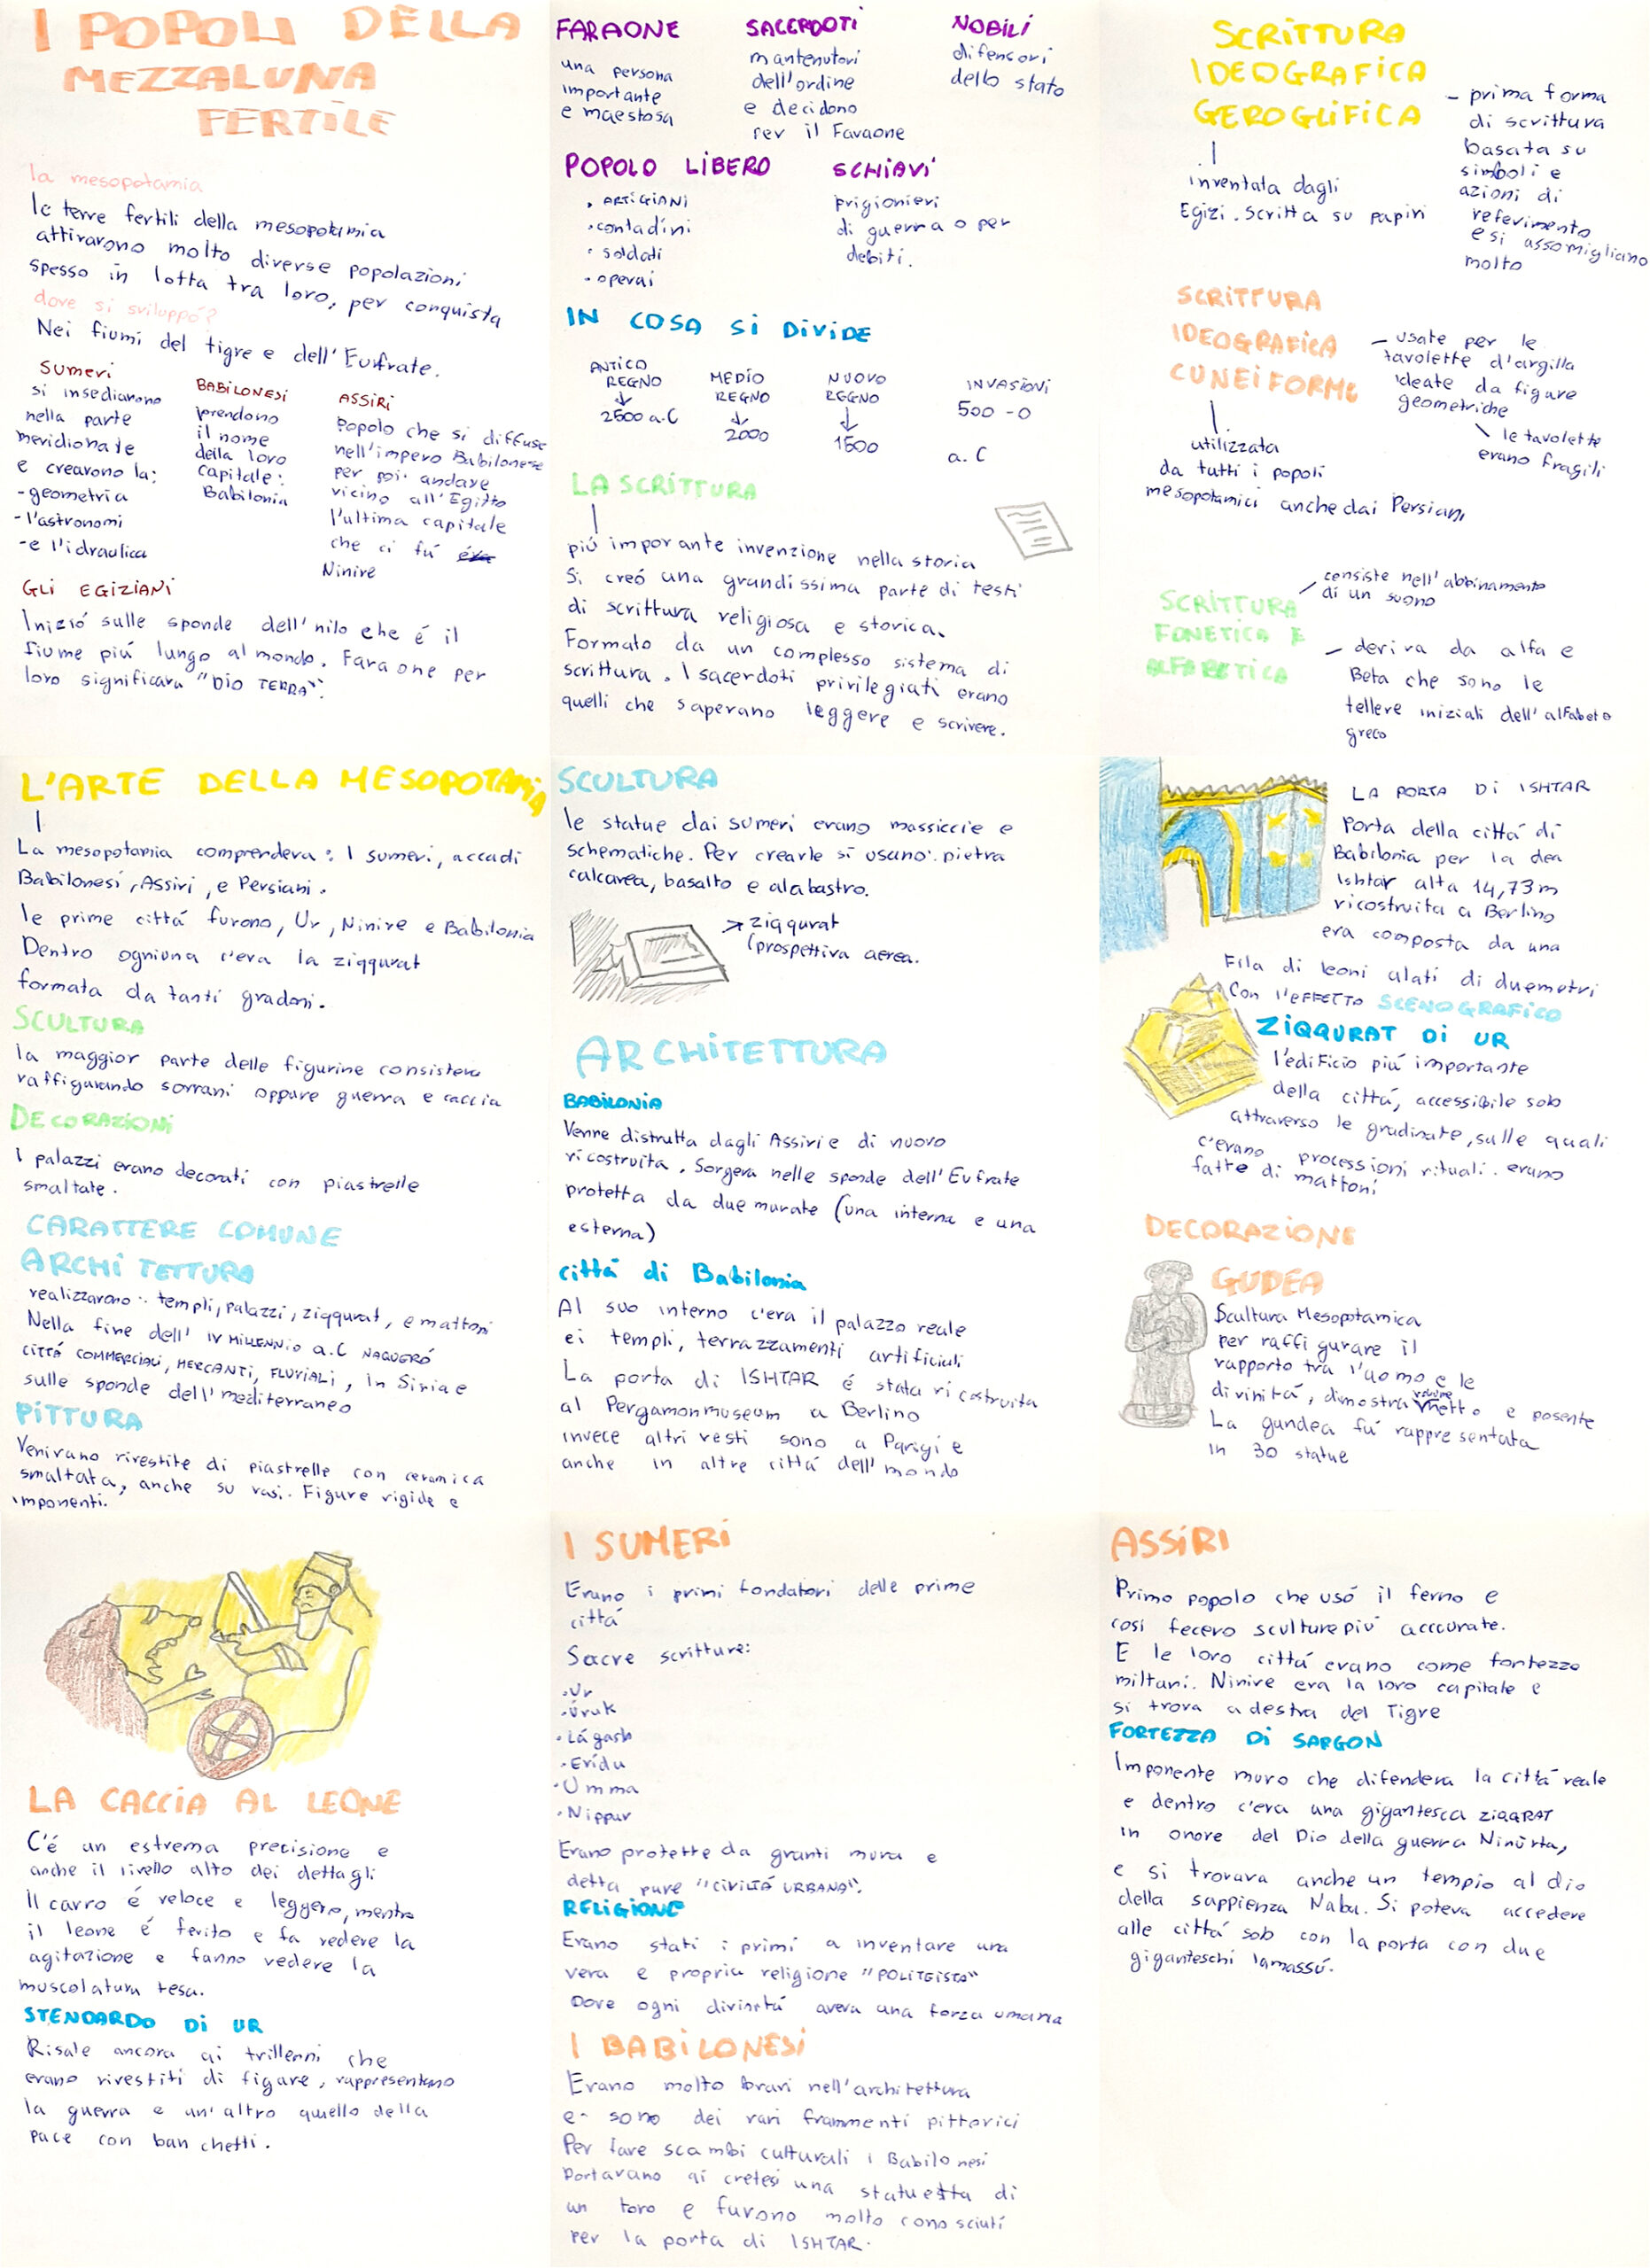 I POPOLI DELLA
MEZZALUNA
FERTILE
la mesopotamia
le terre fertili della mesopotamia
attirarono molto diverse popolazioni
spesso in lotta tra loro, per conquista
dove si sviluppó?
Nei fiumi del tigre e dell'Eufrate.
Sumeri
si insediarono
nella parte
meridionale
e crearono la:
-geometria
-l'astronomi
-e l'idraulica
BABILONESI
prendono
il nome
della loro
capitale:
Babilonia
ASSIRI
Popolo che si diffuse
nell'impero Babilonese
per poi andare
vicino all'Egitto
l'ultima capitale
che ci fú
Ninive
GLI EGIZIANI
Iniziò sulle sponde dell'nilo che é il
fiume piú lungo al mondo. Faraone per
loro significava "DIO TERRA".
FARAONE
una persona
importante
e maestosa
SACERDOTI
mantenutori
dell'ordine
e decidono
per il Faraone
NOBILI
difensori
dello stato
POPOLO LIBERO
• ARTIGIANI
• contadini
• soldati
• operai
SCHIAVI
prigionieri
di guerra o per
debiti.
IN COSA SI DIVIDE
ANTICO
REGNO
↓
2500 a.C
MEDIO
REGNO
↓
2000
NUOVO
REGNO
↓
1500
INVASIONI
500 -0
a.C
LA SCRITTURA
piú imporante invenzione nella storia
Si creó una grandissima parte di testi
di scrittura religiosa e storica.
Formato da un complesso sistema di
scrittura. I sacerdoti privilegiati erano
quelli che sapevano leggere e scrivere.
SCRITTURA
IDEOGRAFICA
GEROGLIFICA
inventata dagli
Egizi. Scritta su papiri
- prima forma
di scrittura
basata su
simboli e
azioni di
referimento
e si assomigliano
molto
SCRITTURA
IDEOGRAFICA
CUNEIFORME
- usate per le
tavolette d'argilla
ideate da figure
geometriche
le tavolette
erano fragili
utilizzata
da tutti i popoli
mesopotamici anche dai Persiani
SCRITTURA
FONETICA E
ALFABETICA
consiste nell'abbinamento
di un suono
- deriva da alfa e
Beta che sono le
tellere iniziali dell'alfabeto
greco
L'ARTE DELLA MESOPOTAMIA
La mesopotamia comprendeva: I sumeri, accadi
Babilonesi, Assiri, e Persiani.
le prime cittá furono, Ur, Ninive e Babilonia
Dentro ogniuna c'era la ziqqurat
formata da tanti gradoni.
SCULTURA
la maggior parte delle figurine consisteva
raffigurando sovrani oppure guerra e caccia
DECORAZIONI
I palazzi erano decorati con piastrelle
smaltate.
CARATTERE COMUNE
ARCHITETTURA
realizzarono: templi, palazzi, ziqqurat, e mattoni
Nella fine dell' IV MILLENNIO a.C NAQUERÓ
CITTÁ COMMERCIALI, MERCANTI, FLUVIALI, in Siria e
sulle sponde dell'mediterraneo
PITTURA
Venivano rivestite di piastrelle con ceramica
smaltata, anche su vasi. Figure rigide e
imponenti.
SCULTURA
le statue dai sumeri erano massiccie e
schematiche. Per crearle si usano: pietra
calcarea, basalto e alabastro.
→ ziqqurat
(prospettiva aerea.
ARCHITETTURA
BABILONIA
Venne distrutta dagli Assiri e di nuovo
ricostruita. Sorgeva nelle sponde dell'Eufrate
protetta da due murate (una interna e una
esterna)
cittá di Babilonia
Al suo interno c'era il palazzo reale
ei templi, terrazzamenti artificiali
La porta di ISHTAR é stata ricostruita
al Pergamonmuseum a Berlino
invece altri resti sono a Parigi e
anche in altre cittá dell'mondo
LA PORTA DI ISHTAR
Porta della cittá di
Babilonia per la dea
Ishtar alta 14,73m
ricostruita a Berlino
era composta da una
Fila di leoni alati di duemetri
Con l'EFFETTO SCENOGRAFICO
ZIQQURAT DI UR
l'edificio piú importante
della cittá, accessibile solo
attraverso le gradinate, sulle quali
c'erano processioni rituali. erano
fatte di mattoni
DECORAZIONE
GUDEA
Scultura Mesopotamica
per raffigurare il
rapporto tra l'uomo e le
divinitá, dimostra volume e possente
La gundea fú rappresentata
in 30 statue
LA CACCIA AL LEONE
C'é un estrema precisione e
anche il livello alto dei dettagli
Il carro é veloce e leggero, mentre
il leone é ferito e fa vedere la
agitazione e fanno vedere la
muscolatura tesa.
STENDARDO DI UR
Risale ancora ai trillenni che
erano rivestiti di figure, rappresentano
la guerra e un'altro quello della
pace con banchetti.
I SUMERI
Erano i primi fondatori delle prime
cittá
Sacre scritture:
• Ur
• Úruk
• Lágash
• Erídu
• Umma
• Nippur
Erano protette da granti mura e
detta pure "CIVILTÁ URBANA".
RELIGIONE
Erano stati i primi a inventare una
vera e propria religione "POLITEISTA"
Dove ogni divinitá aveva una forza umana
I BABILONESI
Erano molto bravi nell'architettura
e sono dei rari frammenti pittorici
Per fare scambi culturali i Babilonesi
Portavano ai cretesi una statuetta di
un toro e furono molto conosciuti
per la porta di ISHTAR.
ASSIRI
Primo popolo che usó il ferro e
cosí fecero sculture piú acccurate.
E le loro cittá erano come fortezze
miltari. Ninive era la loro capitale e
si trova a destra del Tigre
FORTEZZA DI SARGON
Imponente muro che difendeva la cittá reale
e dentro c'era una gigantesca ZIQQRAT
in onore del Dio della guerra Ninùrta,
e si trovava anche un tempio al dio
della sappienza Nabu. Si poteva accedere
alle cittá solo con la porta con due
giganteschi lamassú.